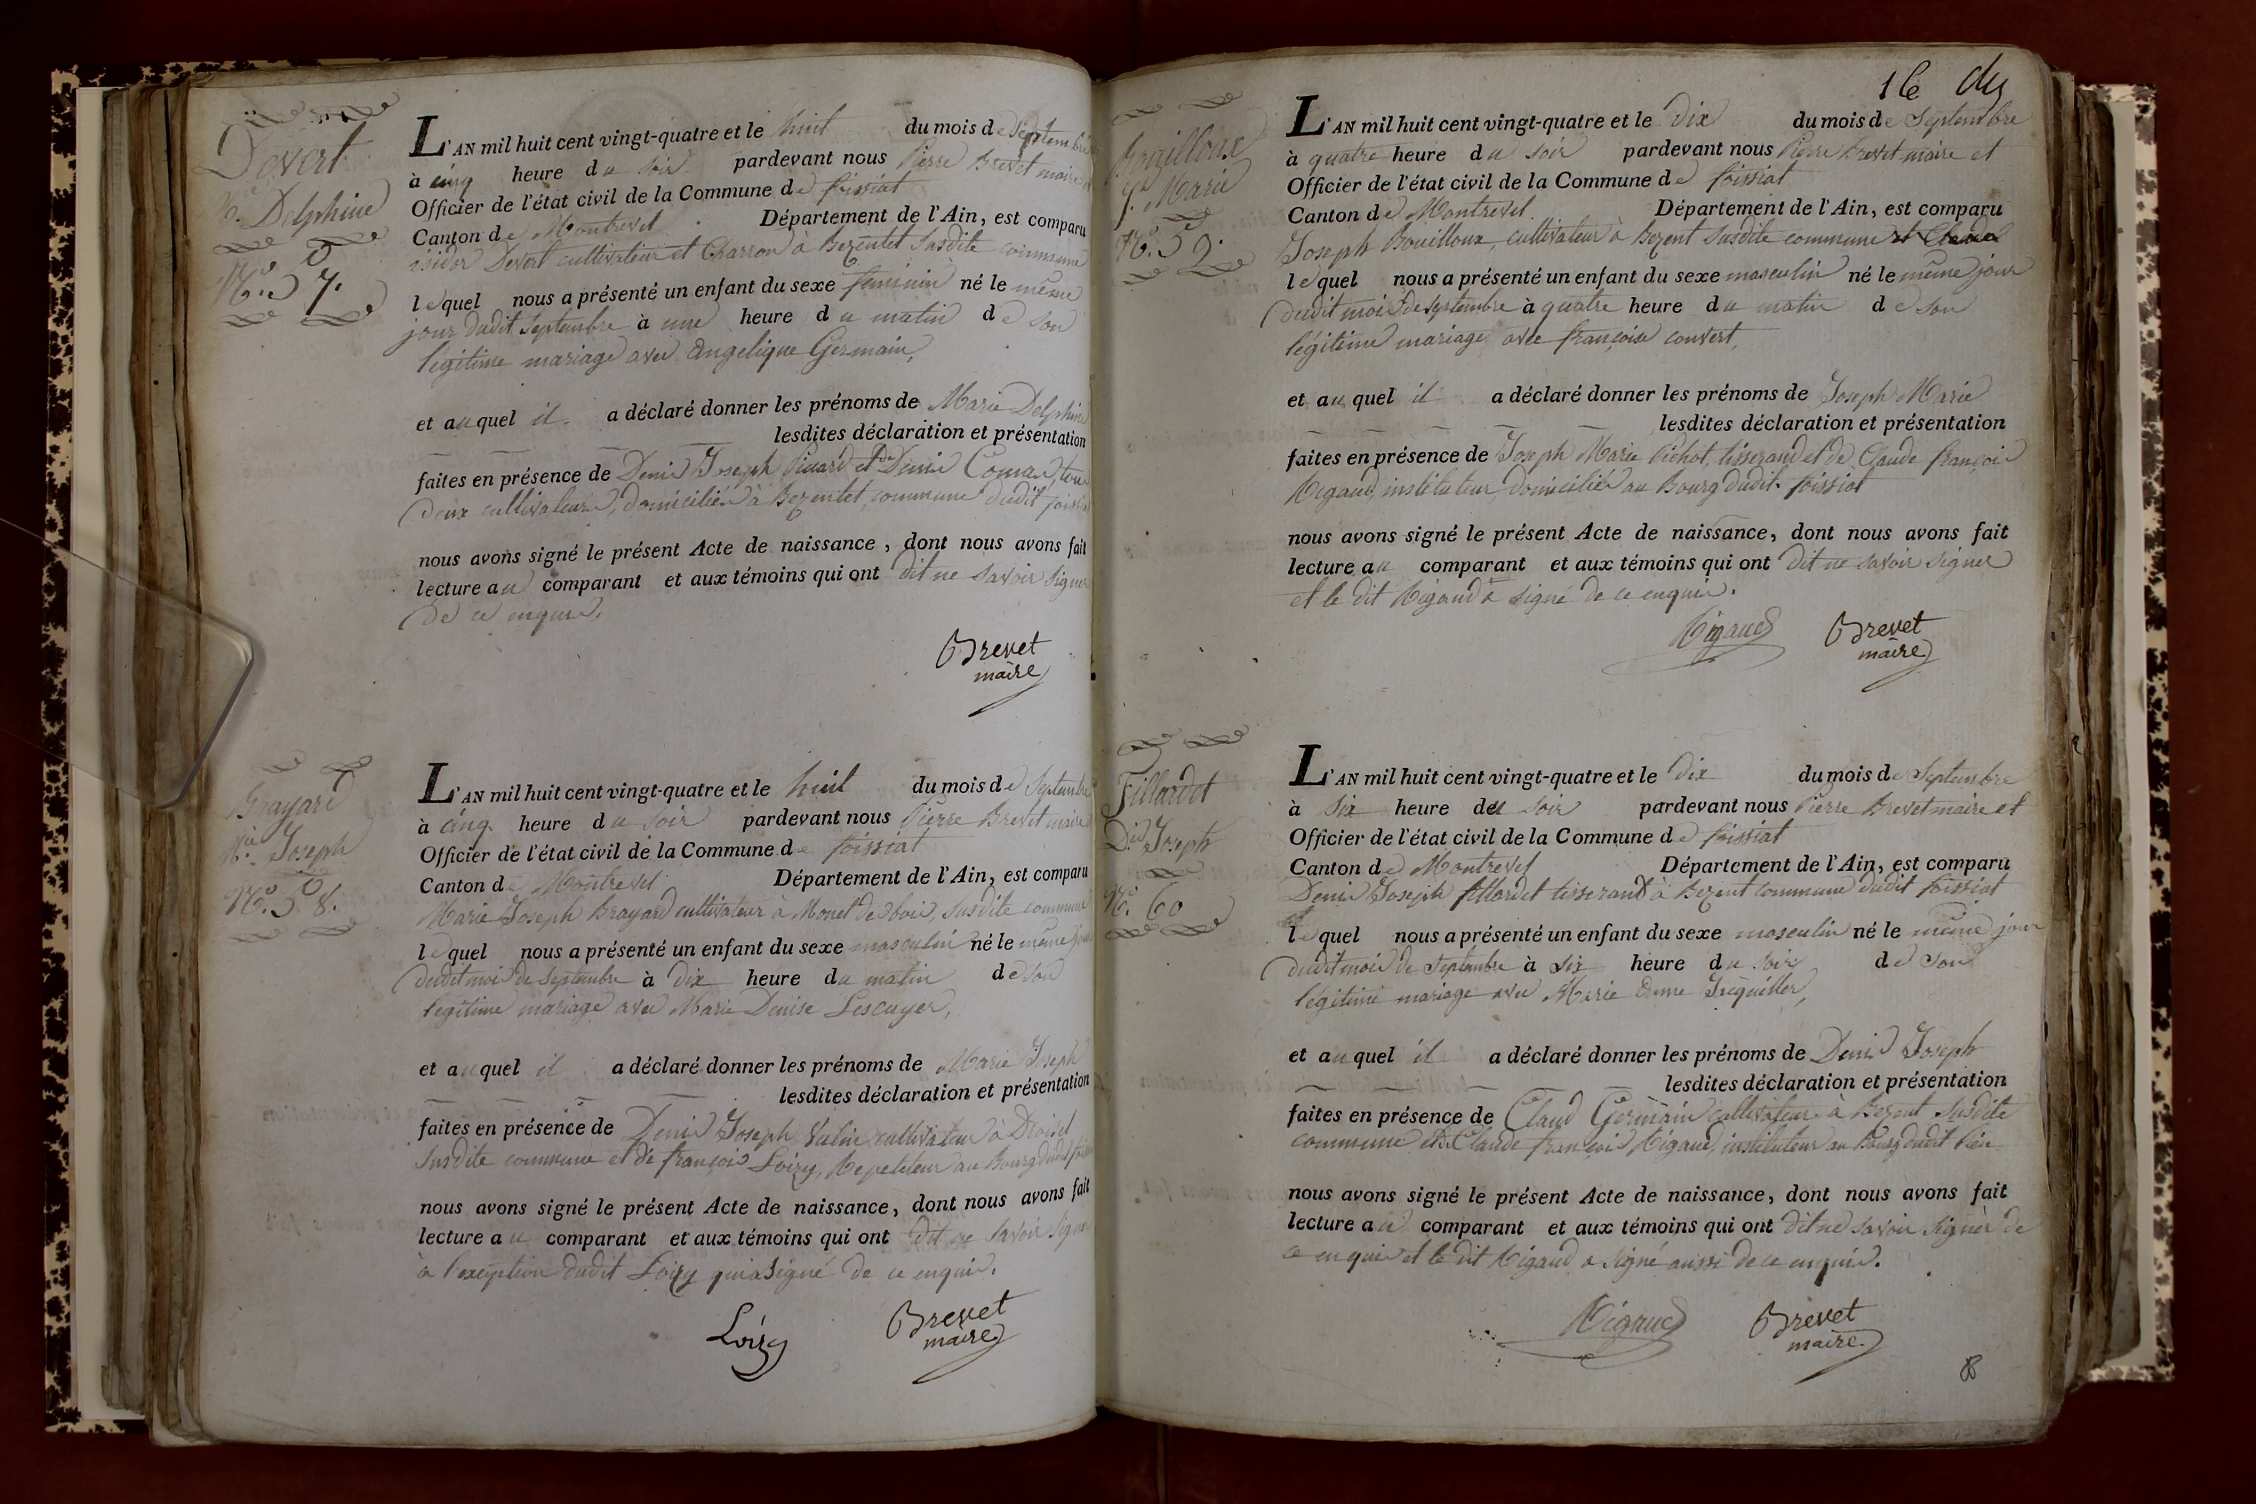 Devert
Me. Delphine
No. 57.
L'AN mil huit cent vingt-quatre et le huit du mois de Septembre
à cinq heure du soir pardevant nous Pierre Brevet maire
Officier de l'état civil de la Commune de foissiat
Canton de Montrevel Département de l'Ain, est comparu
isidor Devert cultivateur et Charron à Bezentet Susdite commune
lequel nous a présenté un enfant du sexe feminin né le même
jour dudit Septembre à une heure du matin de son
légitime mariage avec angelique Germain,
et auquel il a déclaré donner les prénoms de Marie Delphine
lesdites déclaration et présentation
faites en présence de Denis Joseph Picard et de Denis
Deux cultivateurs, domiciliés à Bezentet, commune dudit foissiat
nous avons signé le présent Acte de naissance, dont nous avons fait
lecture au comparant et aux témoins qui ont dit ne savoir signer
De ce enquis.
Brevet
maire
Brayard
Mie. Joseph
No. 58.
L'AN mil huit cent vingt-quatre et le huit du mois de Septembre
à cinq heure du soir pardevant nous Pierre Brevet maire
Officier de l'état civil de la Commune de foissiat
Canton de Montrevel Département de l'Ain, est comparu
Marie Joseph Brayard cultivateur à Monet de bois, susdite commune
lequel nous a présenté un enfant du sexe masculin né le même jour
dudit moi de Septembre à dix heure du matin de son
légitime mariage avec Marie Denise Lescuyer,
et auquel il a déclaré donner les prénoms de Marie Joseph
lesdites déclaration et présentation
faites en présence de Denis Joseph cultivateur à
Susdite commune et de françois Loizy, Repetiteur au Bourg dudit
nous avons signé le présent Acte de naissance, dont nous avons fait
lecture au comparant et aux témoins qui ont dit ne savoir signer
à l'exception dudit Loizy qui a signé de ce enquis.
Loizy Brevet
maire
16 du
Bouilloux
J. Marie
No. 59.
L'AN mil huit cent vingt-quatre et le Dix du mois de Septembre
à quatre heure du soir pardevant nous Pierre Brevet maire et
Officier de l'état civil de la Commune de foissiat
Canton de Montrevel Département de l'Ain, est comparu
Joseph Bouilloux, cultivateur à Bezent susdite commune
lequel nous a présenté un enfant du sexe masculin né le même jour
dudit moi de septembre à quatre heure du matin de son
légitime mariage avec françoise convert,
et auquel il a déclaré donner les prénoms de Joseph Marie
lesdites déclaration et présentation
faites en présence de Joseph Marie Pichot, tisserand et de Claude françois
Rigaud, instituteur domiciliés au Bourg dudit foissiat
nous avons signé le présent Acte de naissance, dont nous avons fait
lecture au comparant et aux témoins qui ont dit ne savoir signer
et le dit Rigaud a signé de ce enquis.
Rigaud Brevet
maire
Fillardet
D.is Joseph
No. 60
L'AN mil huit cent vingt-quatre et le Dix du mois de Septembre
à six heure du soir pardevant nous Pierre Brevet maire et
Officier de l'état civil de la Commune de foissiat
Canton de Montrevel Département de l'Ain, est comparu
Denis Joseph fillardet tisserand à Bezent commune dudit foissiat
lequel nous a présenté un enfant du sexe masculin né le même jour
dudit mois de septembre à six heure du soir de son
légitime mariage avec Marie
et auquel il a déclaré donner les prénoms de Denis Joseph
lesdites déclaration et présentation
faites en présence de Claud Germain cultivateur à Bezent susdite
commune et Claude françois Rigaud, instituteur au Bourg dudit lieu
nous avons signé le présent Acte de naissance, dont nous avons fait
lecture au comparant et aux témoins qui ont dit ne savoir signer de
ce enquis et le dit Rigaud a signé aussi de ce enquis.
Rigaud Brevet
maire